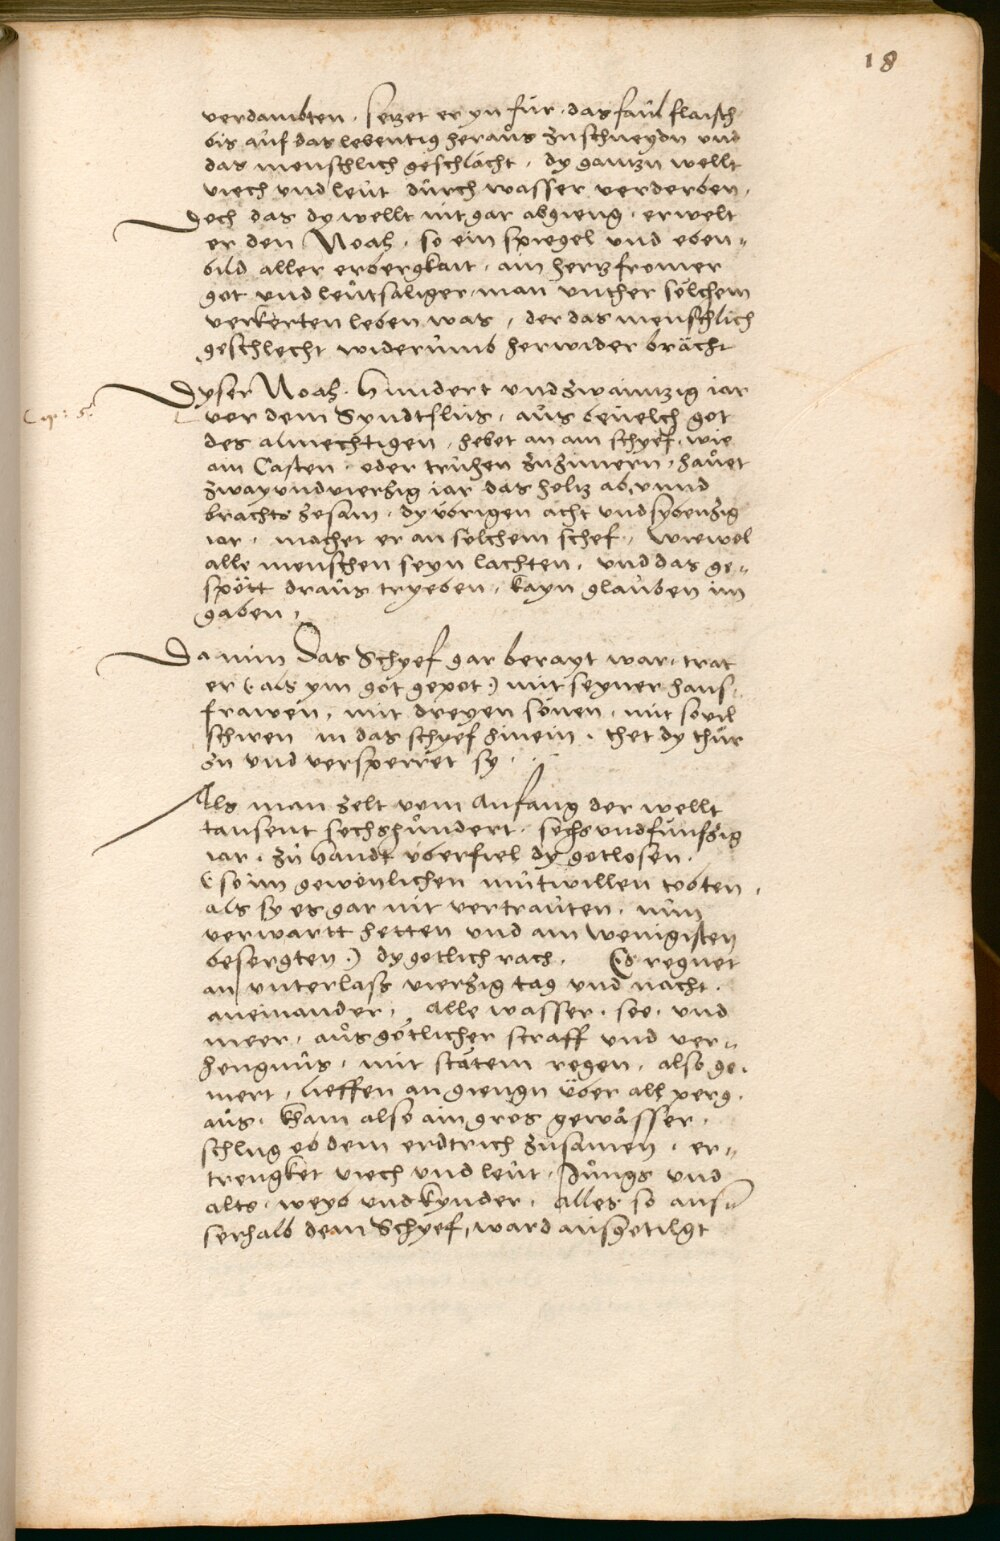 18
verdambten · setzet er yn für · das faul flaisch
bis auf das lebentig heraus zuschneydn und
das menschlich geschlächt · dy gantzn wellt
viech und leut durch wasser verderben ·
Doch das dy wellt nit gar abgieng · erwelt
er den Noah · so ein spiegel und eben„
bild aller erbergkait · ain hertzfromer
got und leutsäliger man unther sölchem
verkerten leben was, der das menschlich
geschlecht widerumb herwider brächt
Dyser Noah · hundert und zwaintzig iar
vor dem Syndtflus · aus bevelch got
des almechtigen · hebet an ain schyef · wie
ain Casten · oder truhen zuzimern · hauet
zway und vierzig iar das holtz ab, unnd
brachts zesam · dy übrigen acht und sybenzig
iar · machet er an solchem schef, wiewol
alle menschen seyn lachten · und das ge„
spött draus tryeben · kayn glauben im
gaben ·
Da nun das Schyef gar berayt war · trat
er (· als ym got gepot ·) mit seyner haus„
frawen, mit dreyen sönen · mit sovil
schwen in das schyef hinein · thet dy thür
zu und versperret sy ·
Als man zelt vom anfang der wellt
tausent sechshundert · sechsundfunfzig
iar · zu handt überfiel dy gotlosen ·
(· so im gewonlichen mutwillen tobten ·
als sy es gar nit vertrauten · nun
verwartt hetten und am wenigisten
besorgten ·) dy gotlich rach · Es regnet
an unterlass vierzig tag und nacht ·
aneinander · alle wasser · see · und
meer · aus götlicher straff und ver„
hengnus · mit stätem regen · also ge„
mert, lieffen an giengn über all perg ·
aus · kham also ain gros gewässer ·
schlug ob dem erdtrich zusamen · er„
trengket viech und leut · Jungs und
alts · weyb und kynder · alles so aus„
serhalb dean Schyef, ward ausgetilgt